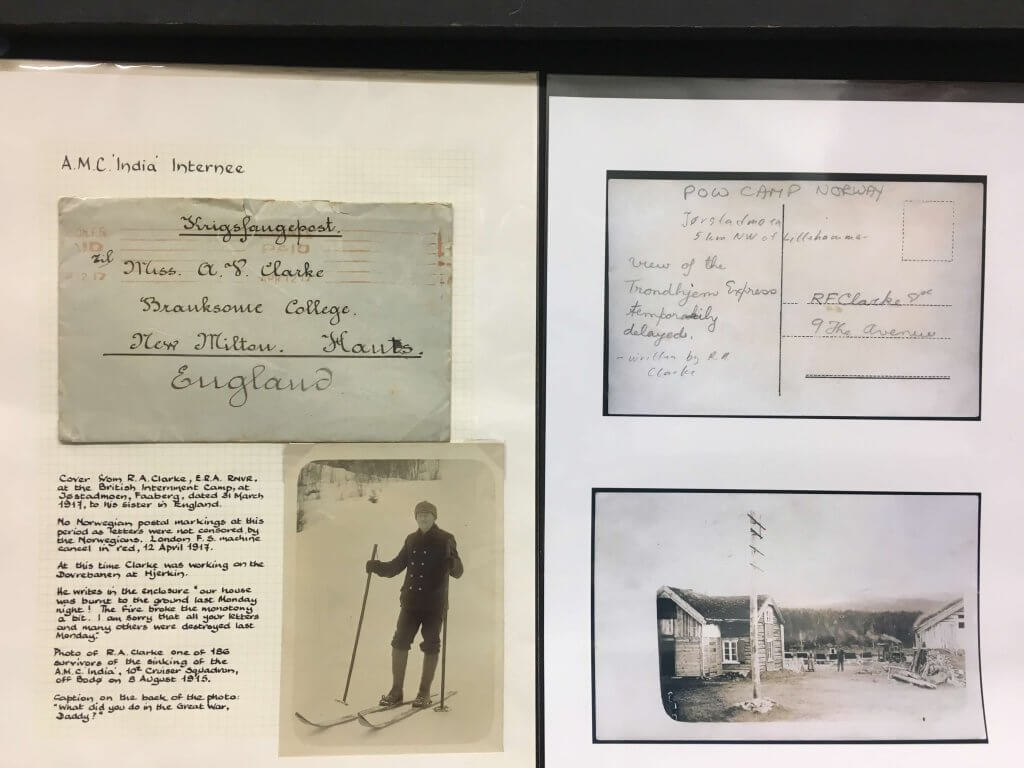 A.M.C. 'India' Internee
Krigsfangepost.
PAID
til
Miss. A. V. Clarke
Branksome College.
New Milton. Hants.
England
Cover from R.A. Clarke, E.R.A. RNVR.
at the British Internment Camp, at
Jøstadmoen, Faaberg, dated 31 March
1917, to his sister in England.
No Norwegian postal markings at this
period as letters were not censored by
the Norwegians. London F.S. machine
cancel in red, 12 April 1917.
At this time Clarke was working on the
Dovrebanen at Hjerkin.
He writes in the enclosure "our house
was burnt to the ground last Monday
night! The fire broke the monotony
a bit. I am sorry that all your letters
and many others were destroyed last
Monday."
Photo of R.A. Clarke one of 186
survivors of the sinking of the
A.M.C. 'India', 10th Cruiser Squadron,
off Bodø on 8 August 1915.
Caption on the back of the photo:
"What did you do in the Great War,
Daddy?"
POW CAMP NORWAY
Jørstadmoen
5 km NW of Lillehammer
View of the
Trondhjem Express
temporarily
delayed.
- written by R.A
Clarke
RFClarke Esq
9 The Avenue